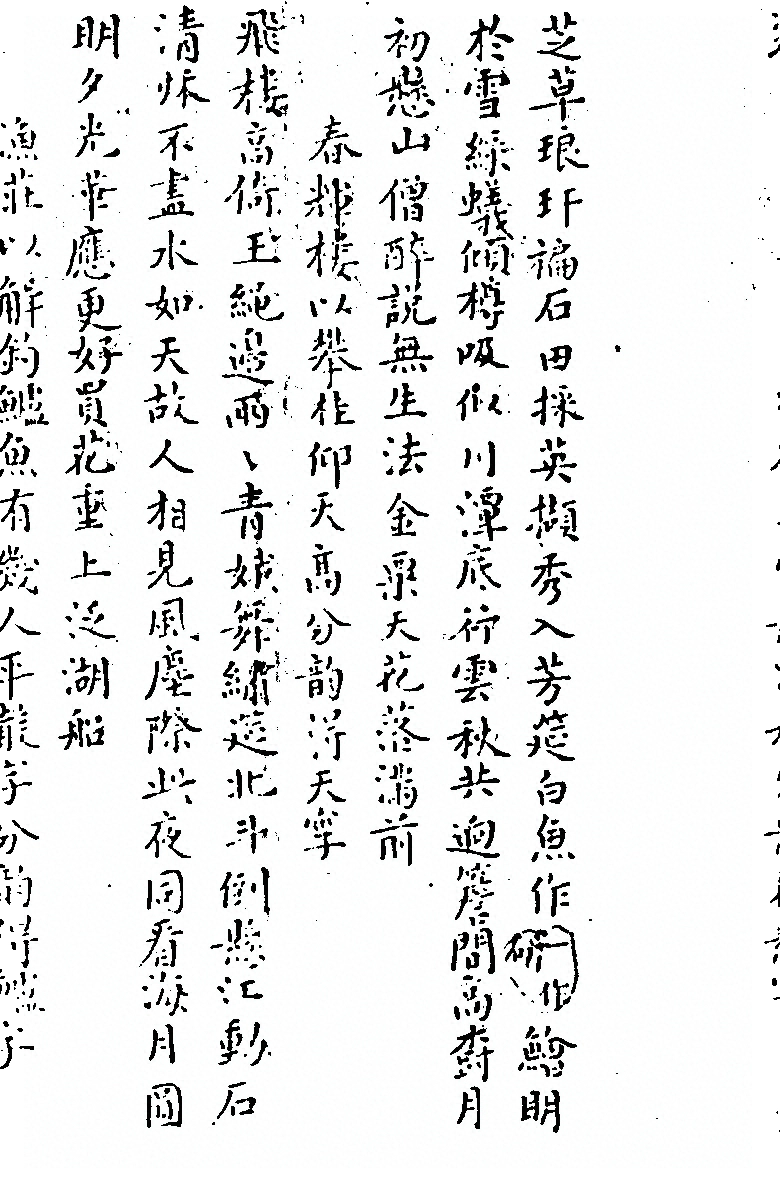 芝草琅玕褊石田採英擷秀入芳筵白魚作研作鱠明
於雪綠蟻傾樽吸似川潭底行雲秋共迥簷間高樹月
初懸山僧醉說無生法金粟天花落滿前
春輝樓以攀桂仰天高分韵得天字
飛樓高倚玉繩邊兩〻青娥舞繡筵北斗倒懸江動石
清秋不盡水如天故人相見風塵際此夜同看海月圓
明夕光華應更好買花上泛湖船
漁莊以解釣鱸魚有幾人平聲字分韵得鱸字